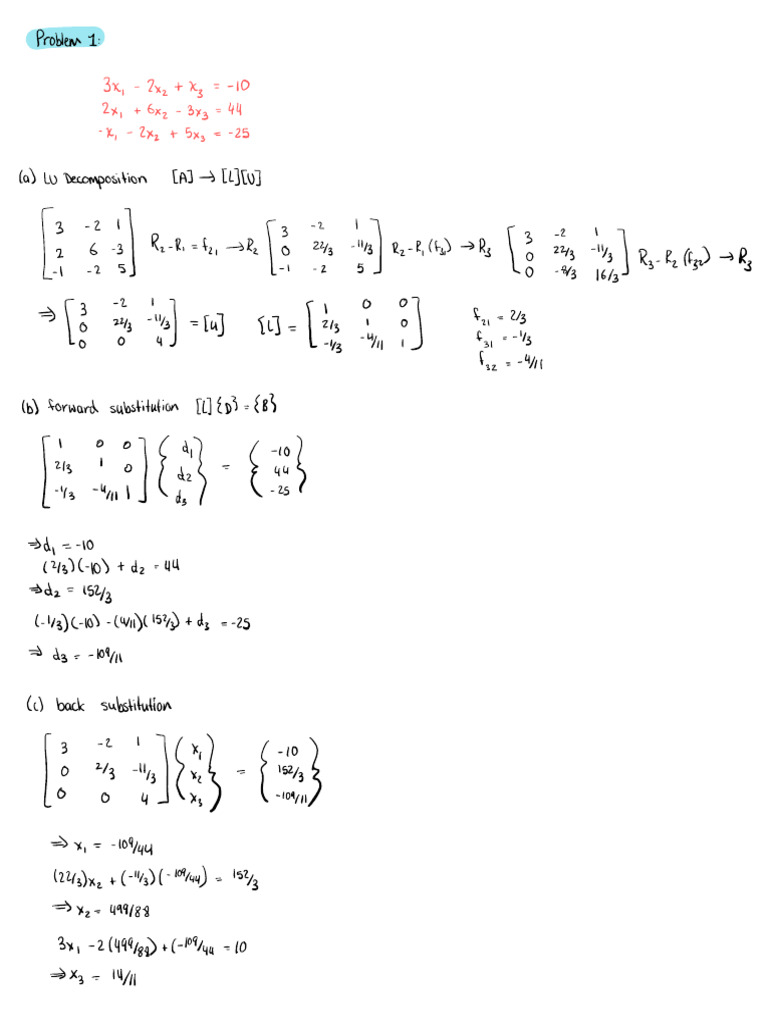 Problem 1:
3x₁ - 2x₂ + x₃ = -10
2x₁ + 6x₂ - 3x₃ = 44
-x₁ - 2x₂ + 5x₃ = -25
(a) LU Decomposition [A] → [L][U]
[3 -2 1; 2 6 -3; -1 -2 5] R₂ - R₁ = f₂₁ → R₂ [3 -2 1; 0 22/3 -11/3; -1 -2 5] R₂ - R₁(f₃₁) → R₃ [3 -2 1; 0 22/3 -11/3; 0 -8/3 16/3] R₃ - R₂(f₃₂) → R₃
⇒ [3 -2 1; 0 22/3 -11/3; 0 0 4] = [U] [L] = [1 0 0; 2/3 1 0; -1/3 -4/11 1]
f₂₁ = 2/3
f₃₁ = -1/3
f₃₂ = -4/11
(b) forward substitution [L]{D} = {B}
[1 0 0; 2/3 1 0; -1/3 -4/11 1] {d₁; d₂; d₃} = {-10; 44; -25}
⇒ d₁ = -10
(2/3)(-10) + d₂ = 44
⇒ d₂ = 152/3
(-1/3)(-10) - (4/11)(152/3) + d₃ = -25
⇒ d₃ = -109/11
(c) back substitution
[3 -2 1; 0 2/3 -11/3; 0 0 4] {x₁; x₂; x₃} = {-10; 152/3; -109/11}
⇒ x₁ = -109/44
(22/3)x₂ + (-11/3)(-109/44) = 152/3
⇒ x₂ = 499/88
3x₁ - 2(499/88) + (-109/44 = 10
⇒ x₃ = 14/11